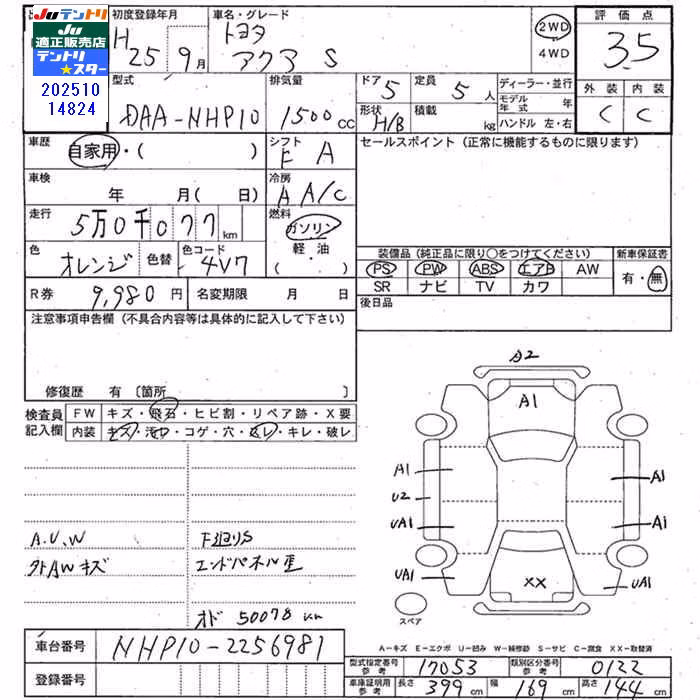 Juテントリ
Ju
適正販売店
テントリ
★スター
202510
14824
初度登録年月
H 25年 9月
車名・グレード
トヨタ
アクア S
2WD
4WD
評価点
3.5
外装 内装
C C
型式
DAA-NHP10
排気量
1500cc
ドア
5
定員
5人
形状
H/B
積載
kg
ディーラー・並行
モデル年式 年
ハンドル 左・右
車歴
自家用・( )
シフト
F A
セールスポイント (正常に機能するものに限ります)
車検
年 月( 日)
冷房
A A/C
走行
5万0千077km
燃料
ガソリン
軽・油
( )
色
オレンジ
色替
色コード
4V7
装備品 (純正品に限り○をつけてください)
新車保証書
PS PW ABS エアB AW
有・無
SR ナビ TV カワ
R券
9,980円
名変期限 月 日
後日品
注意事項申告欄 (不具合内容等は具体的に記入して下さい)
修復歴 有〔箇所 〕
検査員記入欄
FW キズ・飛石・ヒビ割・リペア跡・X要
内装 キズ・汚れ・コゲ・穴・スレ・キレ・破レ
A2
A1
A1
U2
UA1
UA1
A1
A1
UA1
XX
スペア
A.U.W
外AWキズ
F廻りS
エンドパネル歪
オド 50078km
A-キズ E-エクボ U-凹み W-補修跡 S-サビ C-腐食 XX-取替済
車台番号
NHP10-2256981
登録番号
型式指定番号参考
17053
類別区分番号参考
0122
車庫証明用参考
長さ 399cm
幅 169cm
高さ 144cm